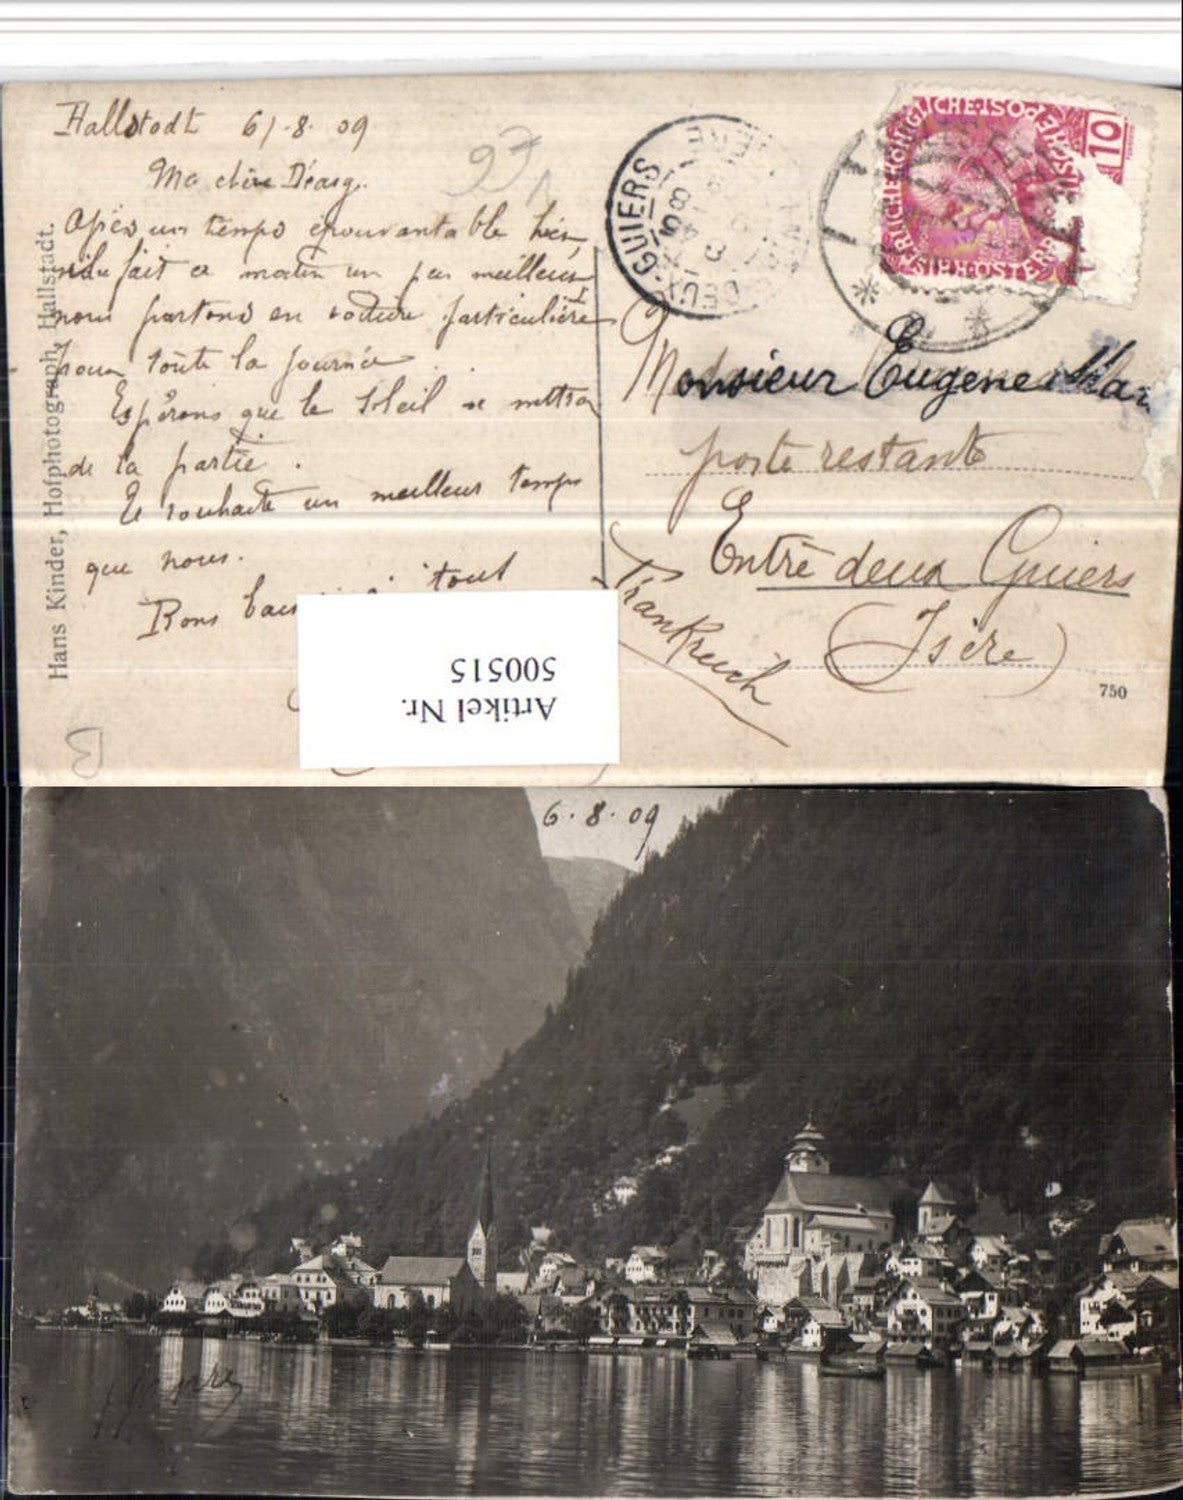 Hallstadt 6/.8.09
Ma chère
Après un temps épouvantable hier
il fait ce matin un peu meilleur
nous partons en voiture particulière
pour toute la journée
Espérons que le Soleil se mettra
de la partie.
Te souhaite un meilleur temps
que nous.
Bons à tout
Hans Kinder, Hofphotograph, Hallstadt.
97
GUIERS
KAISERLICHE KÖNIGLICHE ÖSTERR. POST
10
Monsieur Eugene
poste restante
Entre deux Guiers
(Isère)
Frankreich
750
Artikel Nr.
500515
6.8.09